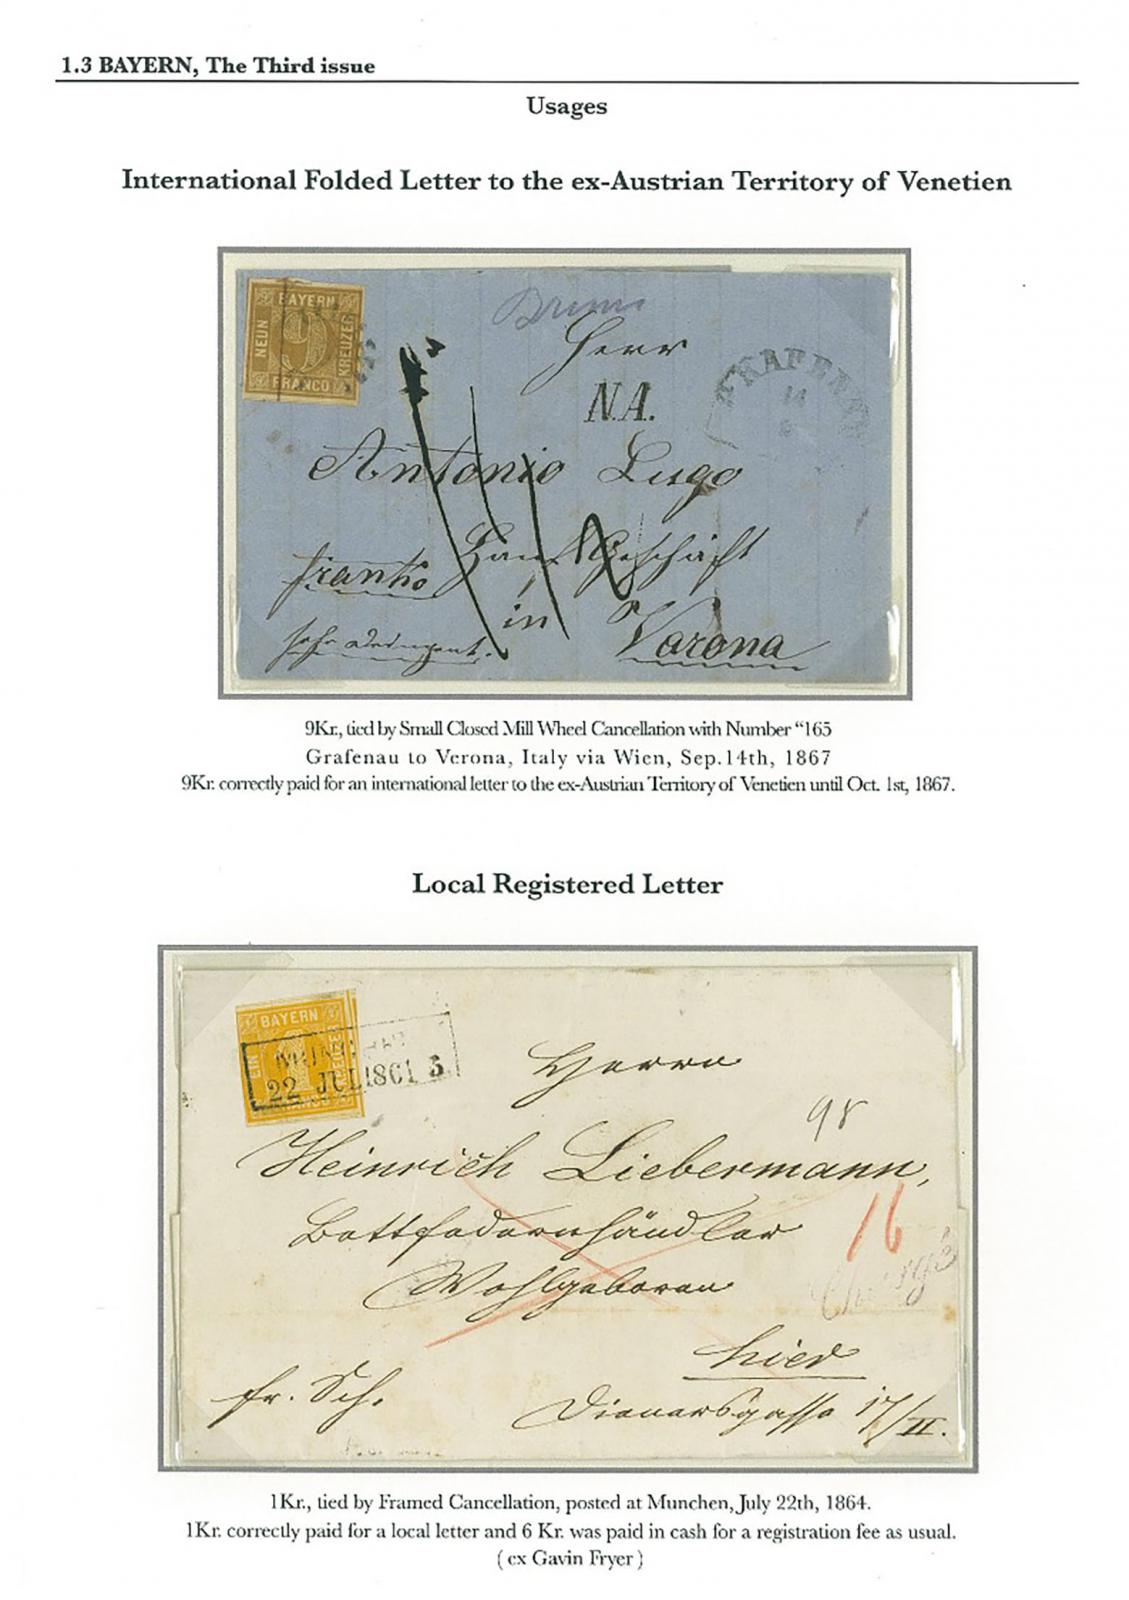 1.3 BAYERN, The Third issue
Usages
International Folded Letter to the ex-Austrian Territory of Venetien
BAYERN
NEUN
9
KREUZER
FRANCO
Herr
N.A.
Antonio Lugo
Geschäft
franko
in Varona
9Kr., tied by Small Closed Mill Wheel Cancellation with Number “165
Grafenau to Verona, Italy via Wien, Sep.14th, 1867
9Kr. correctly paid for an international letter to the ex-Austrian Territory of Venetien until Oct. 1st, 1867.
Local Registered Letter
BAYERN
EIN
1
22 JUL
Herrn
98
Heinrich Liebermann,
Bettfedernhändler
16
Wohlgeboren
Chargé
hier
fr. Sch.
Dienersgasse 17/II.
1Kr., tied by Framed Cancellation, posted at Munchen, July 22th, 1864.
1Kr. correctly paid for a local letter and 6 Kr. was paid in cash for a registration fee as usual.
( ex Gavin Fryer )